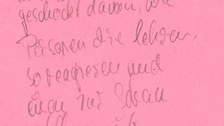 geschockt davon, wie
Personen die lehren,
so reagieren und
einen ins